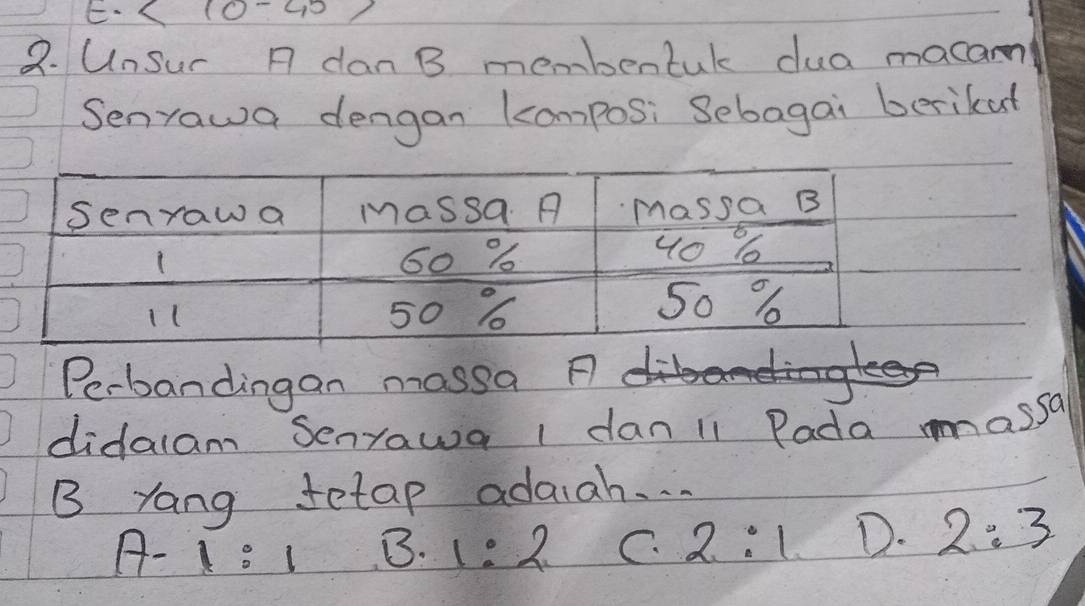 E. < (0-45)
2. Unsur A dan B membentuk dua macam
Senyawa dengan komposi Sebagai berikut
Senyawa Massa A Massa B
1 60 % 40 %
11 50 % 50 %
Perbandingan massa A dibandingkan
didalam Senyawa 1 dan 11 Pada massa
B Yang tetap adalah...
A- 1:1 B. 1:2 C. 2:1 D. 2:3